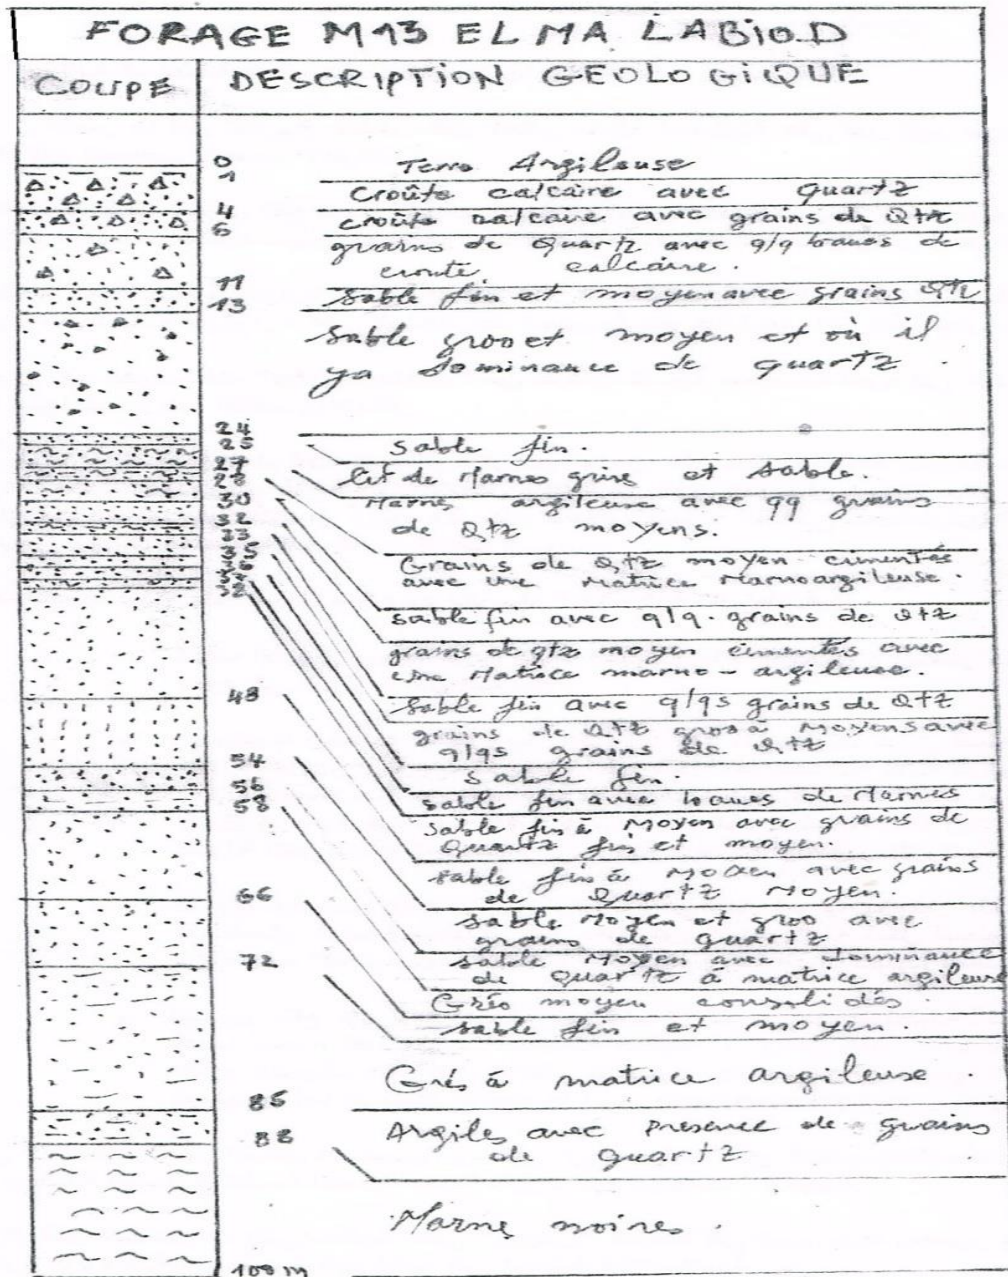 FORAGE M13 EL MA LABIOD
COUPE
DESCRIPTION GEOLOGIQUE
0
Terre Argileuse
1
Croûte calcaire avec quartz
4
croûte calcaire avec grains de Qtz
6
grains de Quartz avec q/q bancs de
croute calcaire.
11
Sable fin et moyen avec grains Qtz
13
Sable gros et moyen et où il
ya dominance de quartz.
24
25
Sable fin.
27
28
lit de Marnes grise et sable.
30
Marnes argileuse avec qq grains
de Qtz moyens.
32
33
35
Grains de Qtz moyen cimentés
avec une Matrice Marnoargileuse.
sable fin avec q/q. grains de Qtz
grains de qtz moyen cimentés avec
une Matrice marno-argileuse.
48
Sable fin avec q/qs grains de Qtz
grains de Qtz gros à Moyens avec
q/qs grains de Qtz
54
Sable fin.
56
sable fin avec bancs de Marnes
58
Sable fin à Moyen avec grains de
Quartz fin et moyen.
sable fin à Moyen avec grains
de Quartz Moyen.
66
sable Moyen et gros avec
grains de quartz
72
sable Moyen avec dominance
de quartz à matrice argileuse
Grés moyen consolidés.
sable fin et moyen.
Grés à matrice argileuse.
85
Argiles avec presence de grains
de quartz
88
Marnes noires.
100 m